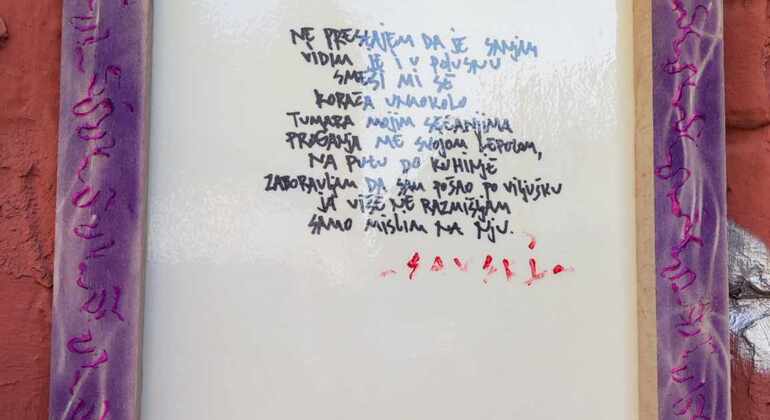 NE PRESTAJEM DA JE SANJAM
VIDIM JE I U POLUSNU
SMEŠI MI SE
KORAČA UNAOKOLO
TUMARA MOJIM SEĆANJIMA
PROGANJA ME SVOJOM LEPOTOM,
NA PUTU DO KUHINJE
ZABORAVLJAM DA SAM POŠAO PO VILJUŠKU
JA VIŠE NE RAZMIŠLJAM
SAMO MISLIM NA NJU.